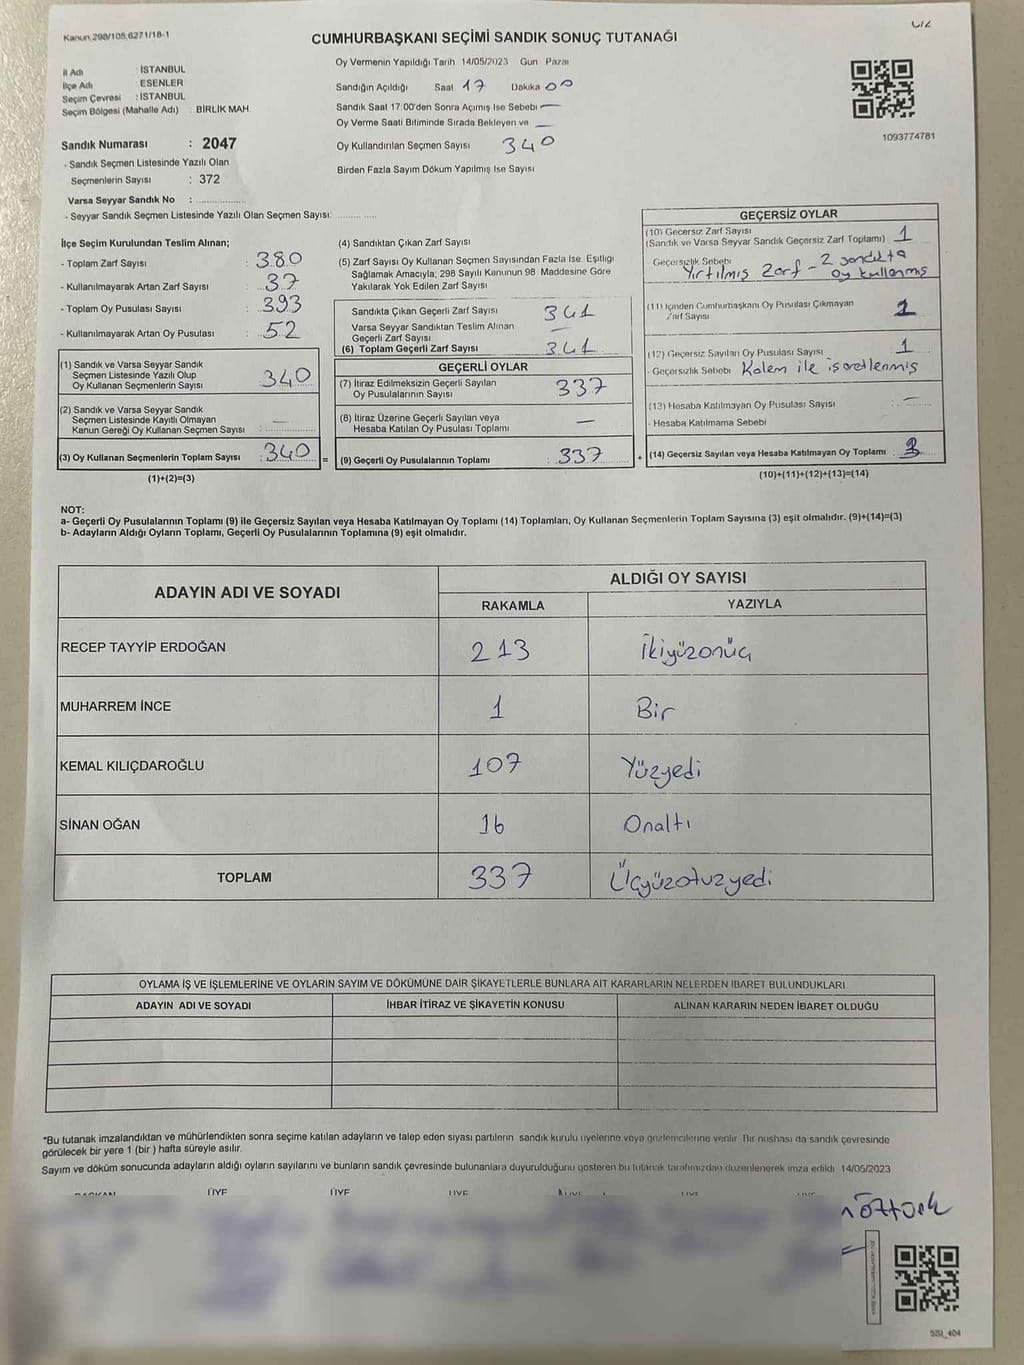 Kanun:298/105,6271/18-1
CUMHURBAŞKANI SEÇİMİ SANDIK SONUÇ TUTANAĞI
İl Adı : İSTANBUL
İlçe Adı : ESENLER
Seçim Çevresi : İSTANBUL
Seçim Bölgesi (Mahalle Adı) BİRLİK MAH.
Sandık Numarası : 2047
- Sandık Seçmen Listesinde Yazılı Olan
Seçmenlerin Sayısı : 372
Varsa Seyyar Sandık No :
- Seyyar Sandık Seçmen Listesinde Yazılı Olan Seçmen Sayısı:
Oy Vermenin Yapıldığı Tarih 14/05/2023 Gün Pazar
Sandığın Açıldığı Saat 17 Dakika 00
Sandık Saat 17:00'den Sonra Açımış İse Sebebi —
Oy Verme Saati Bitiminde Sırada Bekleyen ve —
Oy Kullandırılan Seçmen Sayısı 340
Birden Fazla Sayım Döküm Yapılmış İse Sayısı
1093774781
İlçe Seçim Kurulundan Teslim Alınan;
- Toplam Zarf Sayısı : 380
- Kullanılmayarak Artan Zarf Sayısı : 37
- Toplam Oy Pusulası Sayısı : 393
- Kullanılmayarak Artan Oy Pusulası : 52
(1) Sandık ve Varsa Seyyar Sandık
Seçmen Listesinde Yazılı Olup
Oy Kullanan Seçmenlerin Sayısı 340
(2) Sandık ve Varsa Seyyar Sandık
Seçmen Listesinde Kayıtlı Olmayan
Kanun Gereği Oy Kullanan Seçmen Sayısı : —
(3) Oy Kullanan Seçmenlerin Toplam Sayısı : 340 =
(1)+(2)=(3)
(4) Sandıktan Çıkan Zarf Sayısı
(5) Zarf Sayısı Oy Kullanan Seçmen Sayısından Fazla İse, Eşitliği
Sağlamak Amacıyla; 298 Sayılı Kanunun 98 Maddesine Göre
Yakılarak Yok Edilen Zarf Sayısı
Sandıkta Çıkan Geçerli Zarf Sayısı 341
Varsa Seyyar Sandıktan Teslim Alınan
Geçerli Zarf Sayısı —
(6) Toplam Geçerli Zarf Sayısı 341
GEÇERLİ OYLAR
(7) İtiraz Edilmeksizin Geçerli Sayılan
Oy Pusulalarının Sayısı 337
(8) İtiraz Üzerine Geçerli Sayılan veya
Hesaba Katılan Oy Pusulası Toplamı —
(9) Geçerli Oy Pusulalarının Toplamı : 337 +
GEÇERSİZ OYLAR
(10) Geçersiz Zarf Sayısı
(Sandık ve Varsa Seyyar Sandık Geçersiz Zarf Toplamı) 1
- Geçersizlik Sebebi Yırtılmış Zarf - 2 sandıkta
oy kullanmış
(11) İçinden Cumhurbaşkanı Oy Pusulası Çıkmayan
Zarf Sayısı
(12) Geçersiz Sayılan Oy Pusulası Sayısı 1
- Geçersizlik Sebebi Kalem ile işaretlenmiş
(13) Hesaba Katılmayan Oy Pusulası Sayısı : —
- Hesaba Katılmama Sebebi
(14) Geçersiz Sayılan veya Hesaba Katılmayan Oy Toplamı : 3
(10)+(11)+(12)+(13)=(14)
NOT:
a- Geçerli Oy Pusulalarının Toplamı (9) ile Geçersiz Sayılan veya Hesaba Katılmayan Oy Toplamı (14) Toplamları, Oy Kullanan Seçmenlerin Toplam Sayısına (3) eşit olmalıdır. (9)+(14)=(3)
b- Adayların Aldığı Oyların Toplamı, Geçerli Oy Pusulalarının Toplamına (9) eşit olmalıdır.
ADAYIN ADI VE SOYADI ALDIĞI OY SAYISI
RAKAMLA YAZIYLA
RECEP TAYYİP ERDOĞAN 213 İkiyüzonüç
MUHARREM İNCE 1 Bir
KEMAL KILIÇDAROĞLU 107 Yüzyedi
SİNAN OĞAN 16 Onaltı
TOPLAM 337 Üçyüzotuzyedi
OYLAMA İŞ VE İŞLEMLERİNE VE OYLARIN SAYIM VE DÖKÜMÜNE DAİR ŞİKAYETLERLE BUNLARA AİT KARARLARIN NELERDEN İBARET BULUNDUKLARI
ADAYIN ADI VE SOYADI İHBAR İTİRAZ VE ŞİKAYETİN KONUSU ALINAN KARARIN NEDEN İBARET OLDUĞU
*Bu tutanak imzalandıktan ve mühürlendikten sonra seçime katılan adayların ve talep eden siyasi partilerin sandık kurulu üyelerine veya gözlemcilerine verilir. Bir nushası da sandık çevresinde
görülecek bir yere 1 (bir ) hafta süreyle asılır.
Sayım ve döküm sonucunda adayların aldığı oyların sayılarını ve bunların sandık çevresinde bulunanlara duyurulduğunu gösteren bu tutanak tarafımızdan düzenlenerek imza edildi 14/05/2023
BAŞKAN ÜYE ÜYE ÜYE ÜYE ÜYE ÜYE
Öztürk
SSI_404